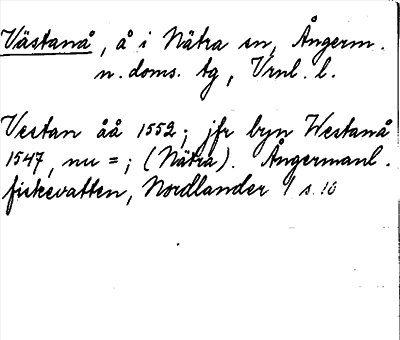 Västanå, å i Nätra sn, Ångerm.
n. doms. tg, Vrnl. l.
Vestan åå 1552; jfr byn Westanå
1547, nu =; (Nätra). Ångermanl.
fiskevatten, Nordlander 1 s. 10